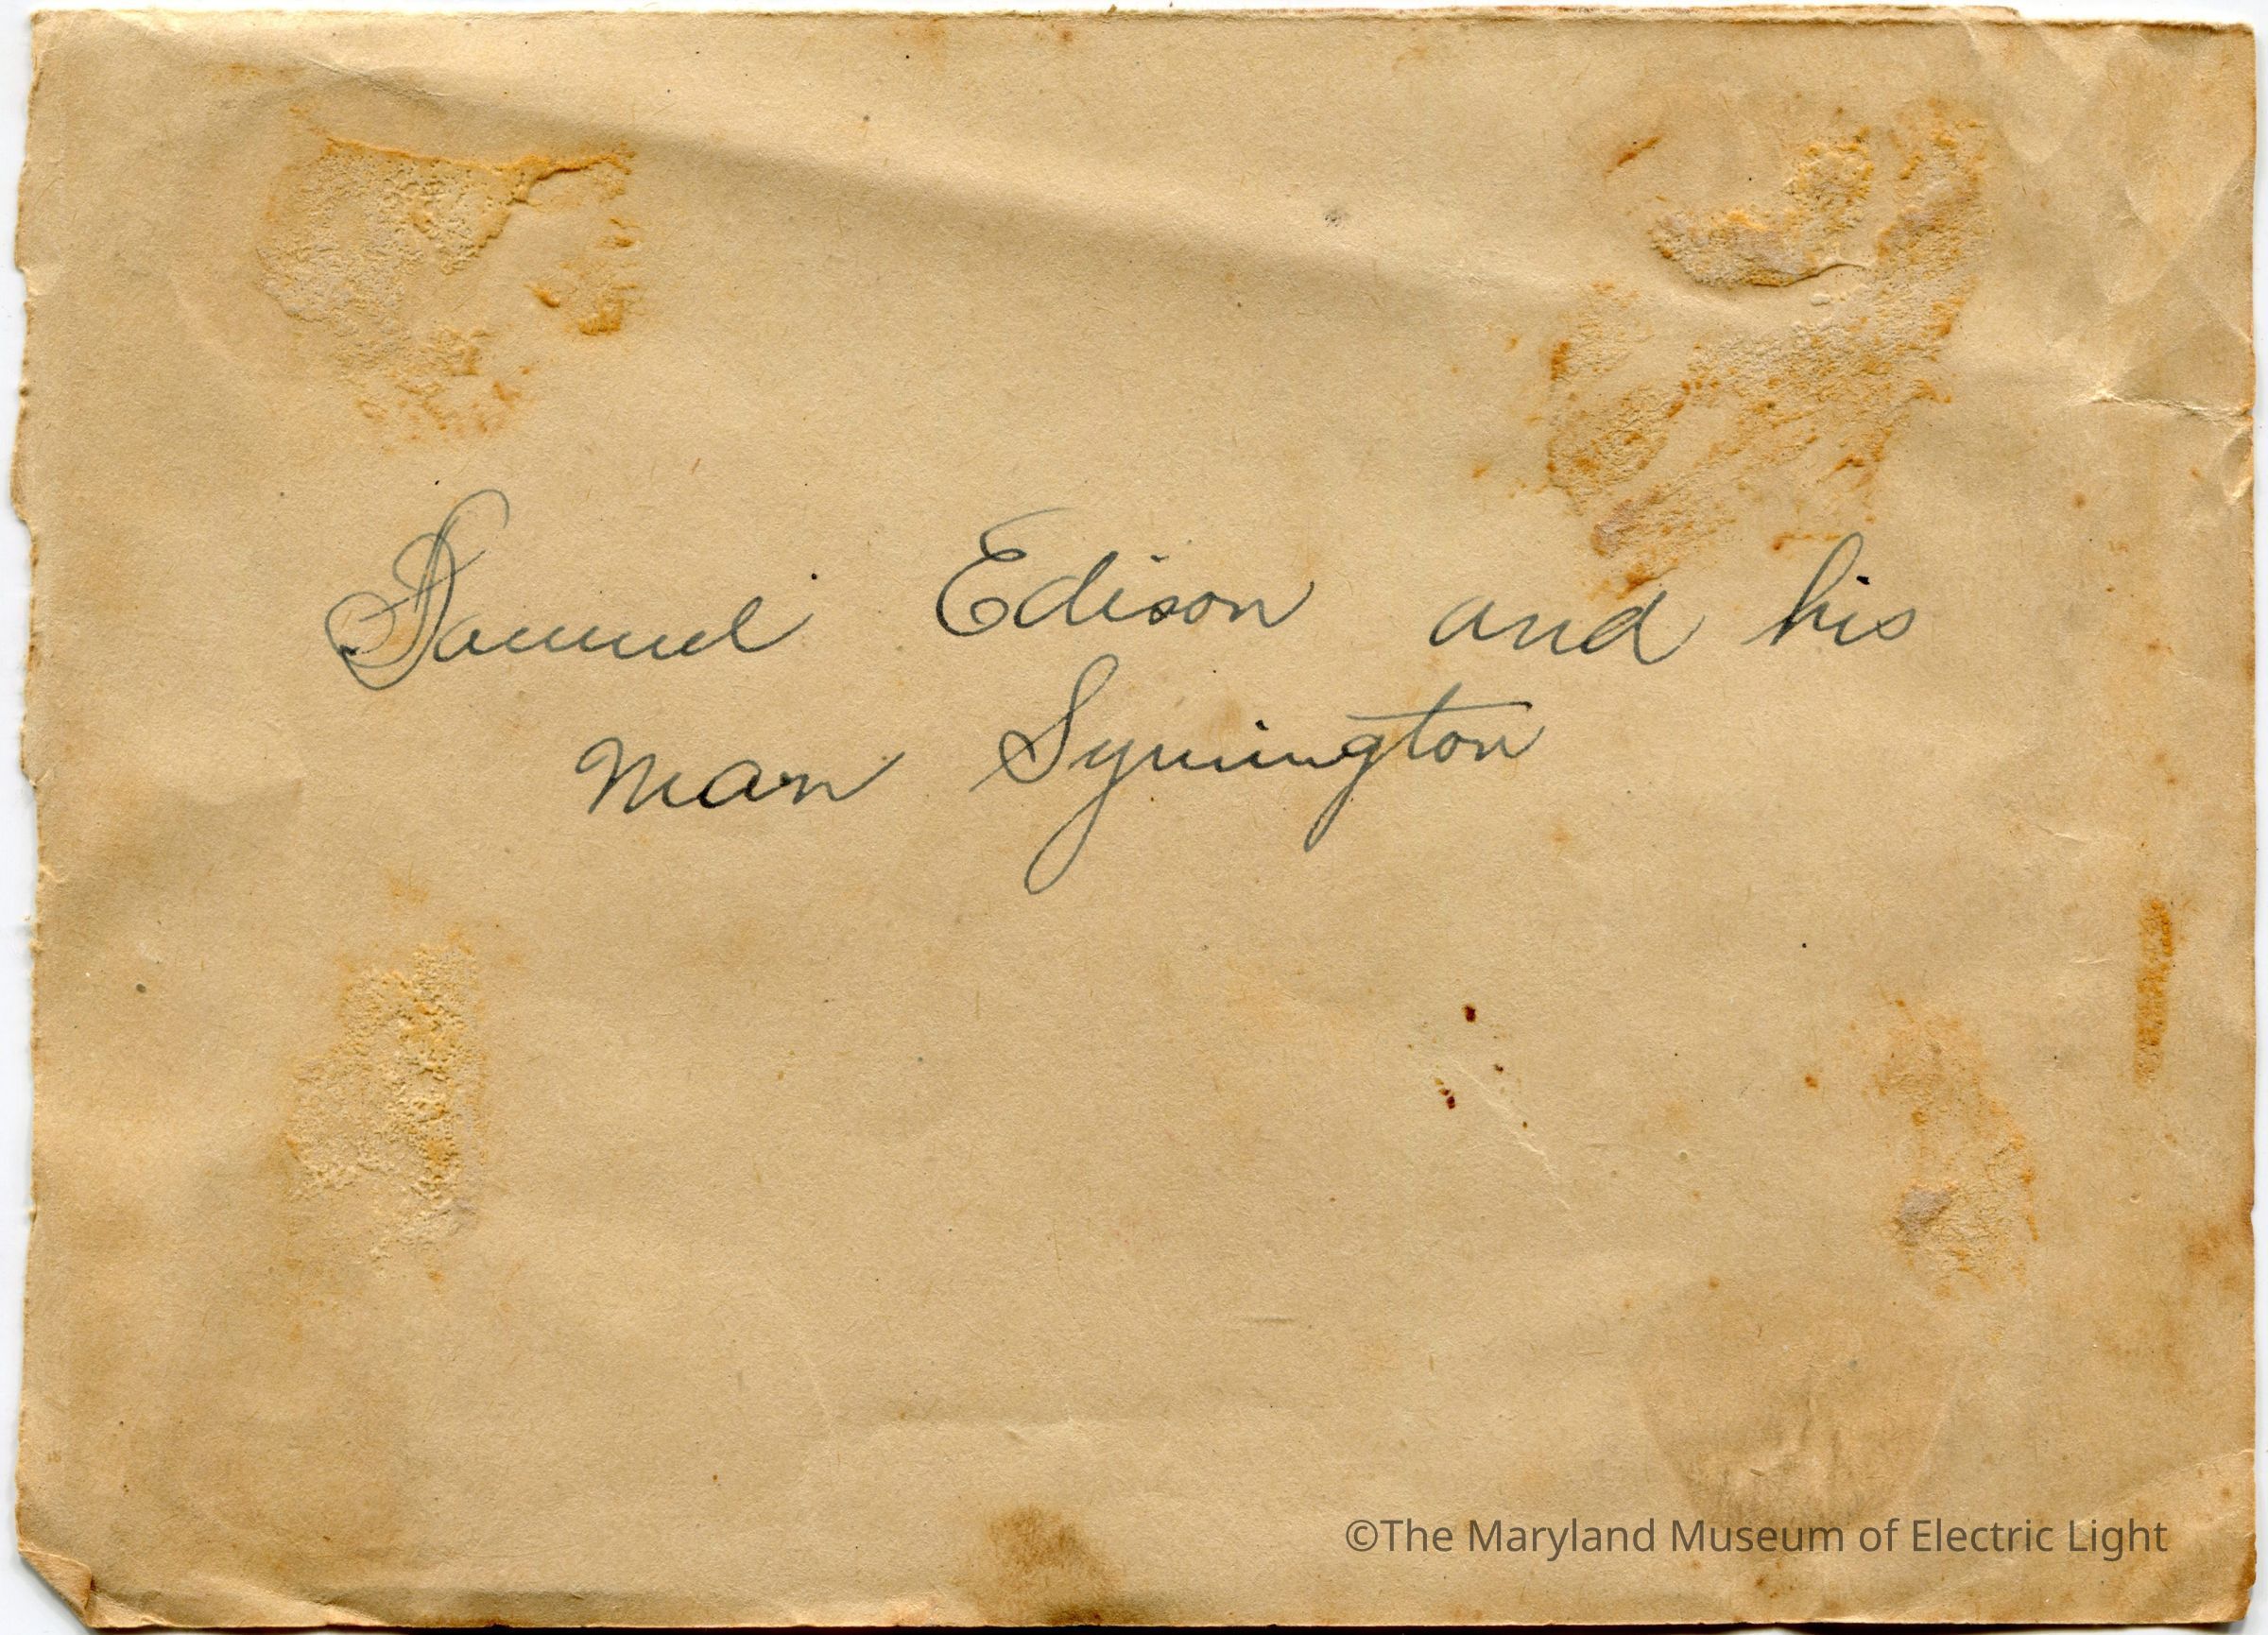 Samuel Edison and his
man Symington
©The Maryland Museum of Electric Light